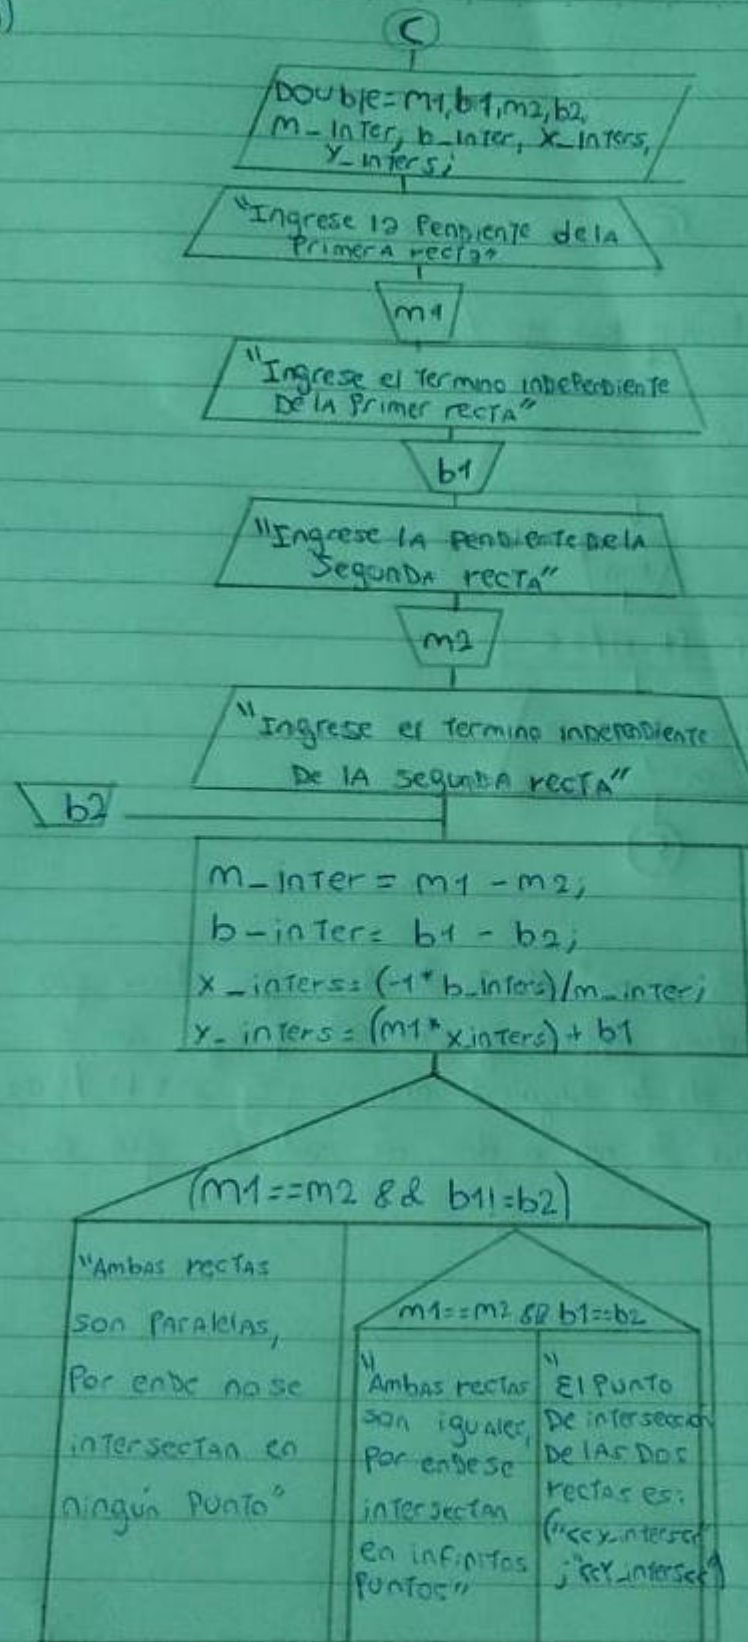 C
Double=m1,b1,m2,b2,
m_inter, b_inter, x_inters,
y_inters;
"Ingrese la Pendiente de la
Primera recta"
m1
"Ingrese el Termino independiente
De la Primer recta"
b1
"Ingrese la pendiente De la
Segunda recta"
m2
"Ingrese el Termino independiente
De la segunda recta"
b2
m_inter = m1 - m2;
b-inter= b1 - b2;
x_inters=(-1*b_inters)/m_inter;
y_inters=(m1*xinters)+b1
(m1==m2 && b1!=b2)
"Ambas rectas
son Paralelas,
Por ende no se
intersectan en
ningún Punto"
m1==m2 && b1==b2
"Ambas rectas
son iguales,
Por ende se
intersectan
en infinitos
Puntos"
"El Punto
De intersección
De las Dos
rectas es: